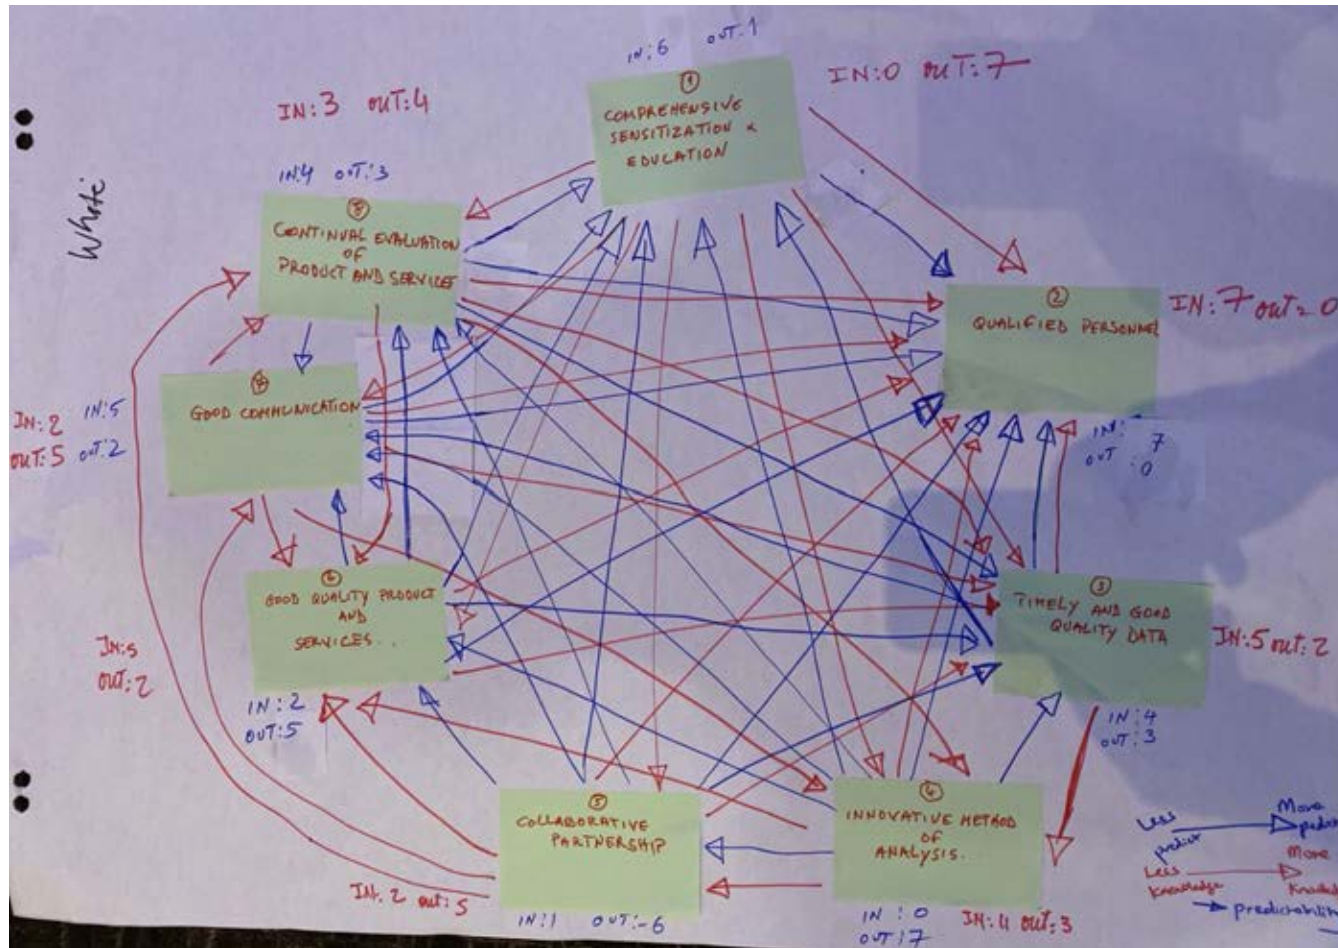 White
IN:6 OUT:1
IN:0 OUT:7
①
COMPREHENSIVE
SENSITIZATION &
EDUCATION
IN:3 OUT:4
IN:4 OUT:3
⑧
CONTINUAL EVALUATION
OF
PRODUCT AND SERVICES
②
QUALIFIED PERSONNEL
IN:7 OUT=0
IN: 7
OUT :0
GOOD COMMUNICATION
IN:2 IN:5
OUT:5 OUT:2
GOOD QUALITY PRODUCT
AND
SERVICES..
IN:5
OUT:2
IN:2
OUT:5
③
TIMELY AND GOOD
QUALITY DATA
IN:5 OUT:2
IN:4
OUT:3
⑤
COLLABORATIVE
PARTNERSHIP
IN.2 OUT:5
IN:1 OUT:-6
④
INNOVATIVE METHOD
OF
ANALYSIS.
IN:0 IN:4 OUT:3
OUT:7
Less More
predict predict
Less More
Knowledge
predictability